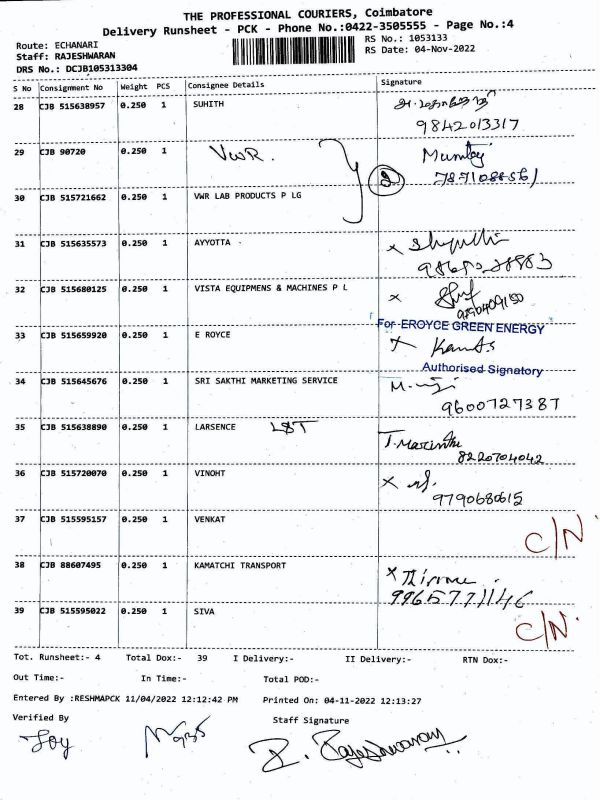 THE PROFESSIONAL COURIERS, Coimbatore
Delivery Runsheet - PCK - Phone No.:0422-3505555 - Page No.:4
Route: ECHANARI
RS No.: 1053133
Staff: RAJESHWARAN
RS Date: 04-Nov-2022
DRS No.: DCJB105313304
S No Consignment No Weight PCS Consignee Details Signature
28 CJB 515638957 0.250 1 SUHITH
9842013317
29 CJB 90720 0.250 1 VWR. Mumtaj
2
30 CJB 515721662 0.250 1 VWR LAB PRODUCTS P LG
31 CJB 515635573 0.250 1 AYYOTTA
32 CJB 515680125 0.250 1 VISTA EQUIPMENS & MACHINES P L
For EROYCE GREEN ENERGY
33 CJB 515659920 0.250 1 E ROYCE
Authorised Signatory
34 CJB 515645676 0.250 1 SRI SAKTHI MARKETING SERVICE
9600727387
35 CJB 515638890 0.250 1 LARSENCE L&T
8220704042
36 CJB 515720070 0.250 1 VINOHT
9790680615
37 CJB 515595157 0.250 1 VENKAT C/N
38 CJB 88607495 0.250 1 KAMATCHI TRANSPORT
39 CJB 515595022 0.250 1 SIVA C/N
Tot. Runsheet:- 4 Total Dox:- 39 I Delivery:- II Delivery:- RTN Dox:-
Out Time:- In Time:- Total POD:-
Entered By :RESHMAPCK 11/04/2022 12:12:42 PM Printed On: 04-11-2022 12:13:27
Verified By Staff Signature
Joy R. Rajeshwaran